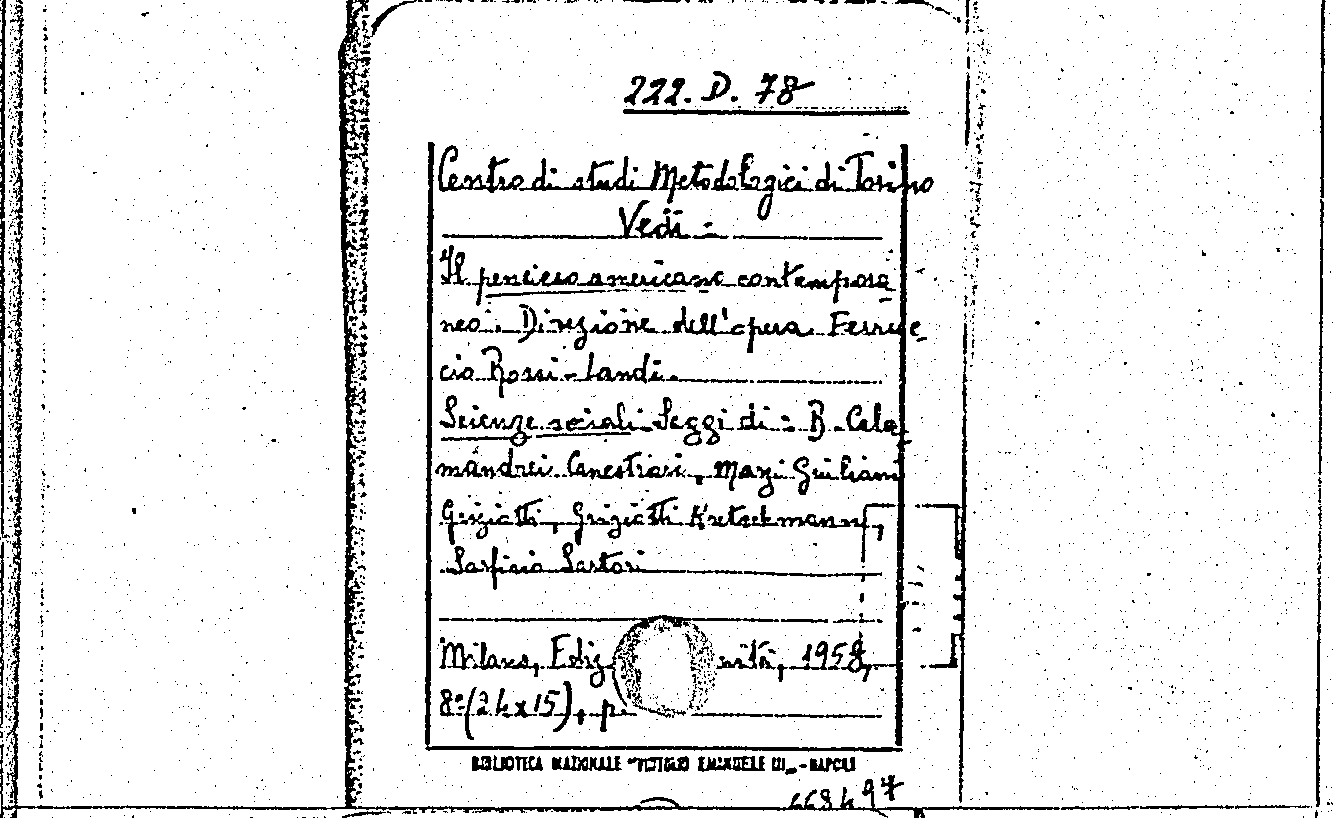 222. D. 78
Centro di studi Metodologici di Torino
Vedi :
Il pensiero americano contempora
neo. Direzione dell'opera Ferruc
cio Rossi-Landi.
Scienze sociali. Saggi di : B. Cala
mandrei Canestrari, Manzi Giuliani
Griziotti, Griziotti Kretschmann,
Sartori
Milano, Ediz nità, 1958,
8°(24x15), p.
BIBLIOTECA NAZIONALE "VITTORIO EMANUELE III„ - NAPOLI
668497